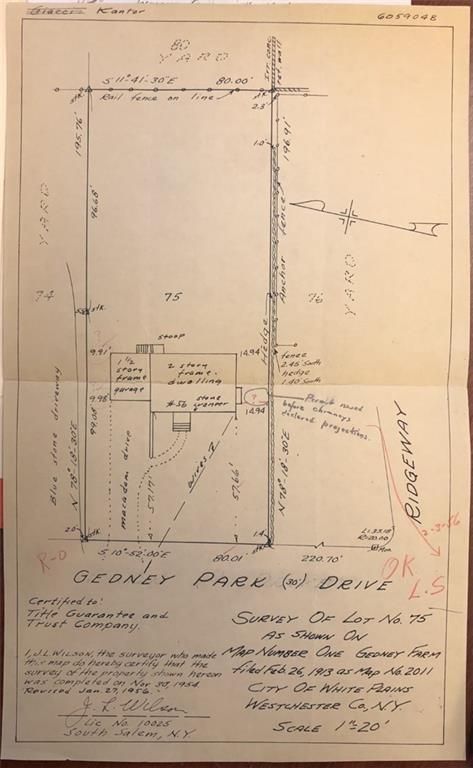 Kantor
6059048
80
YARD
S 11°-41'-30"E 80.00'
stk
Rail fence on line
stk
2.3'
1.0'
195.76'
196.91'
96.68'
Anchor fence
YARD
YARD
74
75
76
stk
Hedge
stoop
9.91'
1 1/2 story frame garage
2 story frame dwelling
#56
14.94
fence
2.45 South
hedge
1.40 South
9.98
stone
14.94
?
Permit issued
before chimneys
declared projections.
Blue stone driveway
N 78°-18'-30"E
99.08'
macadam drive
57.17'
wires
57.66'
N 78°-18'-30"E
RIDGEWAY
L=33.18'
R=20.00
Mon
2.0'
stk
1.4'
stk
2-3-56
R-D
S 10°-52'-00"E 80.01' 220.70'
OK
L.S
GEDNEY PARK (30') DRIVE
Certified to:
Title Guarantee and
Trust Company.
I, J.L. WILSON, the surveyor who made
this map do hereby certify that the
survey of the property shown hereon
was completed on Nov 30, 1954.
Revised Jan. 27, 1956.
J. L. Wilson
Lic No. 10025
South Salem, N.Y
SURVEY OF LOT NO. 75
AS SHOWN ON
MAP NUMBER ONE GEDNEY FARM
filed Feb 26, 1913 as Map No. 2011
CITY OF WHITE PLAINS
WESTCHESTER CO., N.Y.
SCALE 1"=20'